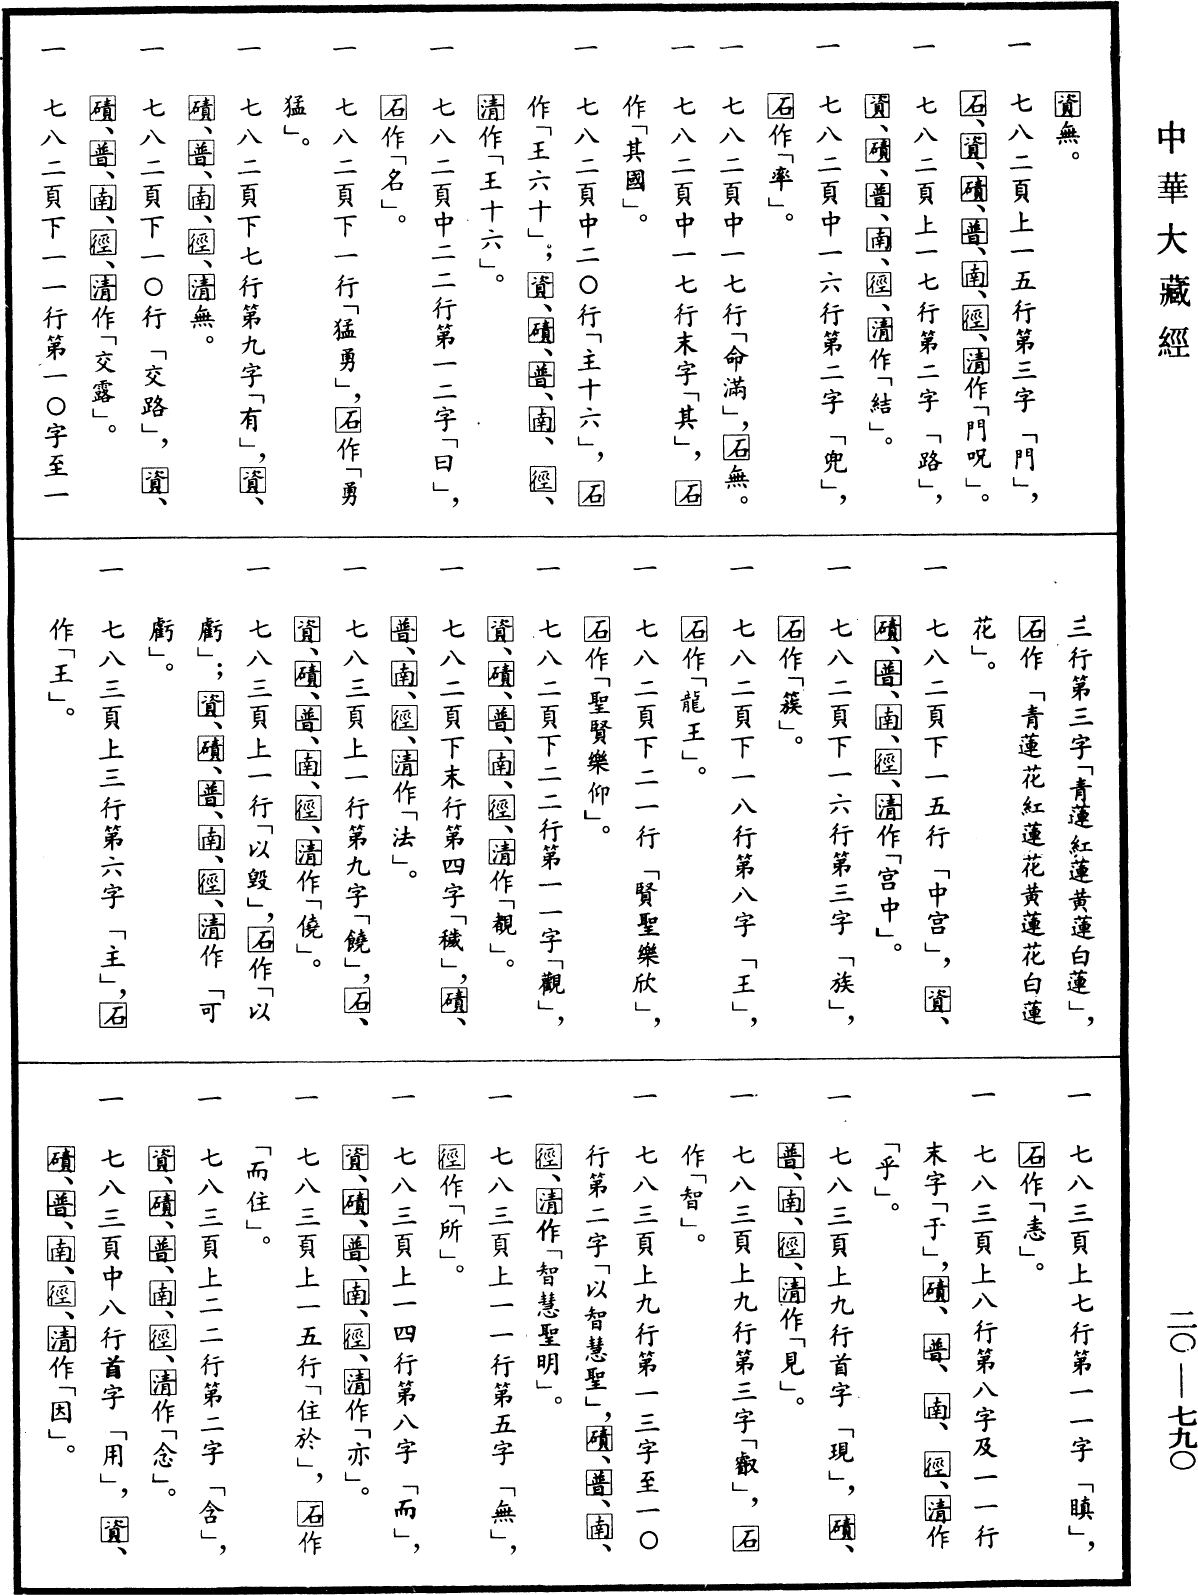 中華大藏經
資無。
一 七八二頁上一五行第三字「門」，
石、資、磧、普、南、徑、清作「門呪」。
一 七八二頁上一七行第二字「路」，
資、磧、普、南、徑、清作「結」。
一 七八二頁中一六行第二字「兜」，
石作「率」。
一 七八二頁中一七行「命滿」，石無。
一 七八二頁中一七行末字「其」，石
作「其國」。
一 七八二頁中二〇行「主十六」，石
作「王六十」；資、磧、普、南、徑、
清作「王十六」。
一 七八二頁中二二行第一二字「曰」，
石作「名」。
一 七八二頁下一行「猛勇」，石作「勇
猛」。
一 七八二頁下七行第九字「有」，資、
磧、普、南、徑、清無。
一 七八二頁下一〇行「交路」，資、
磧、普、南、徑、清作「交露」。
一 七八二頁下一一行第一〇字至一
三行第三字「青蓮紅蓮黄蓮白蓮」，
石作「青蓮花紅蓮花黄蓮花白蓮
花」。
一 七八二頁下一五行「中宫」，資、
磧、普、南、徑、清作「宫中」。
一 七八二頁下一六行第三字「族」，
石作「簇」。
一 七八二頁下一八行第八字「王」，
石作「龍王」。
一 七八二頁下二一行「賢聖樂欣」，
石作「聖賢樂仰」。
一 七八二頁下二二行第一一字「觀」，
資、磧、普、南、徑、清作「覩」。
一 七八二頁下末行第四字「穢」，磧、
普、南、徑、清作「法」。
一 七八三頁上一行第九字「饒」，石、
資、磧、普、南、徑、清作「僥」。
一 七八三頁上一行「以毀」，石作「以
虧」；資、磧、普、南、徑、清作「可
虧」。
一 七八三頁上三行第六字「主」，石
作「王」。
一 七八三頁上七行第一一字「瞋」，
石作「恚」。
一 七八三頁上八行第八字及一一行
末字「于」，磧、普、南、徑、清作
「乎」。
一 七八三頁上九行首字「現」，磧、
普、南、徑、清作「見」。
一 七八三頁上九行第三字「叡」，石
作「智」。
一 七八三頁上九行第一三字至一〇
行第二字「以智慧聖」，磧、普、南、
徑、清作「智慧聖明」。
一 七八三頁上一一行第五字「無」，
徑作「所」。
一 七八三頁上一四行第八字「而」，
資、磧、普、南、徑、清作「亦」。
一 七八三頁上一五行「住於」，石作
「而住」。
一 七八三頁上二二行第二字「含」，
資、磧、普、南、徑、清作「念」。
一 七八三頁中八行首字「用」，資、
磧、普、南、徑、清作「因」。
二〇——七九〇